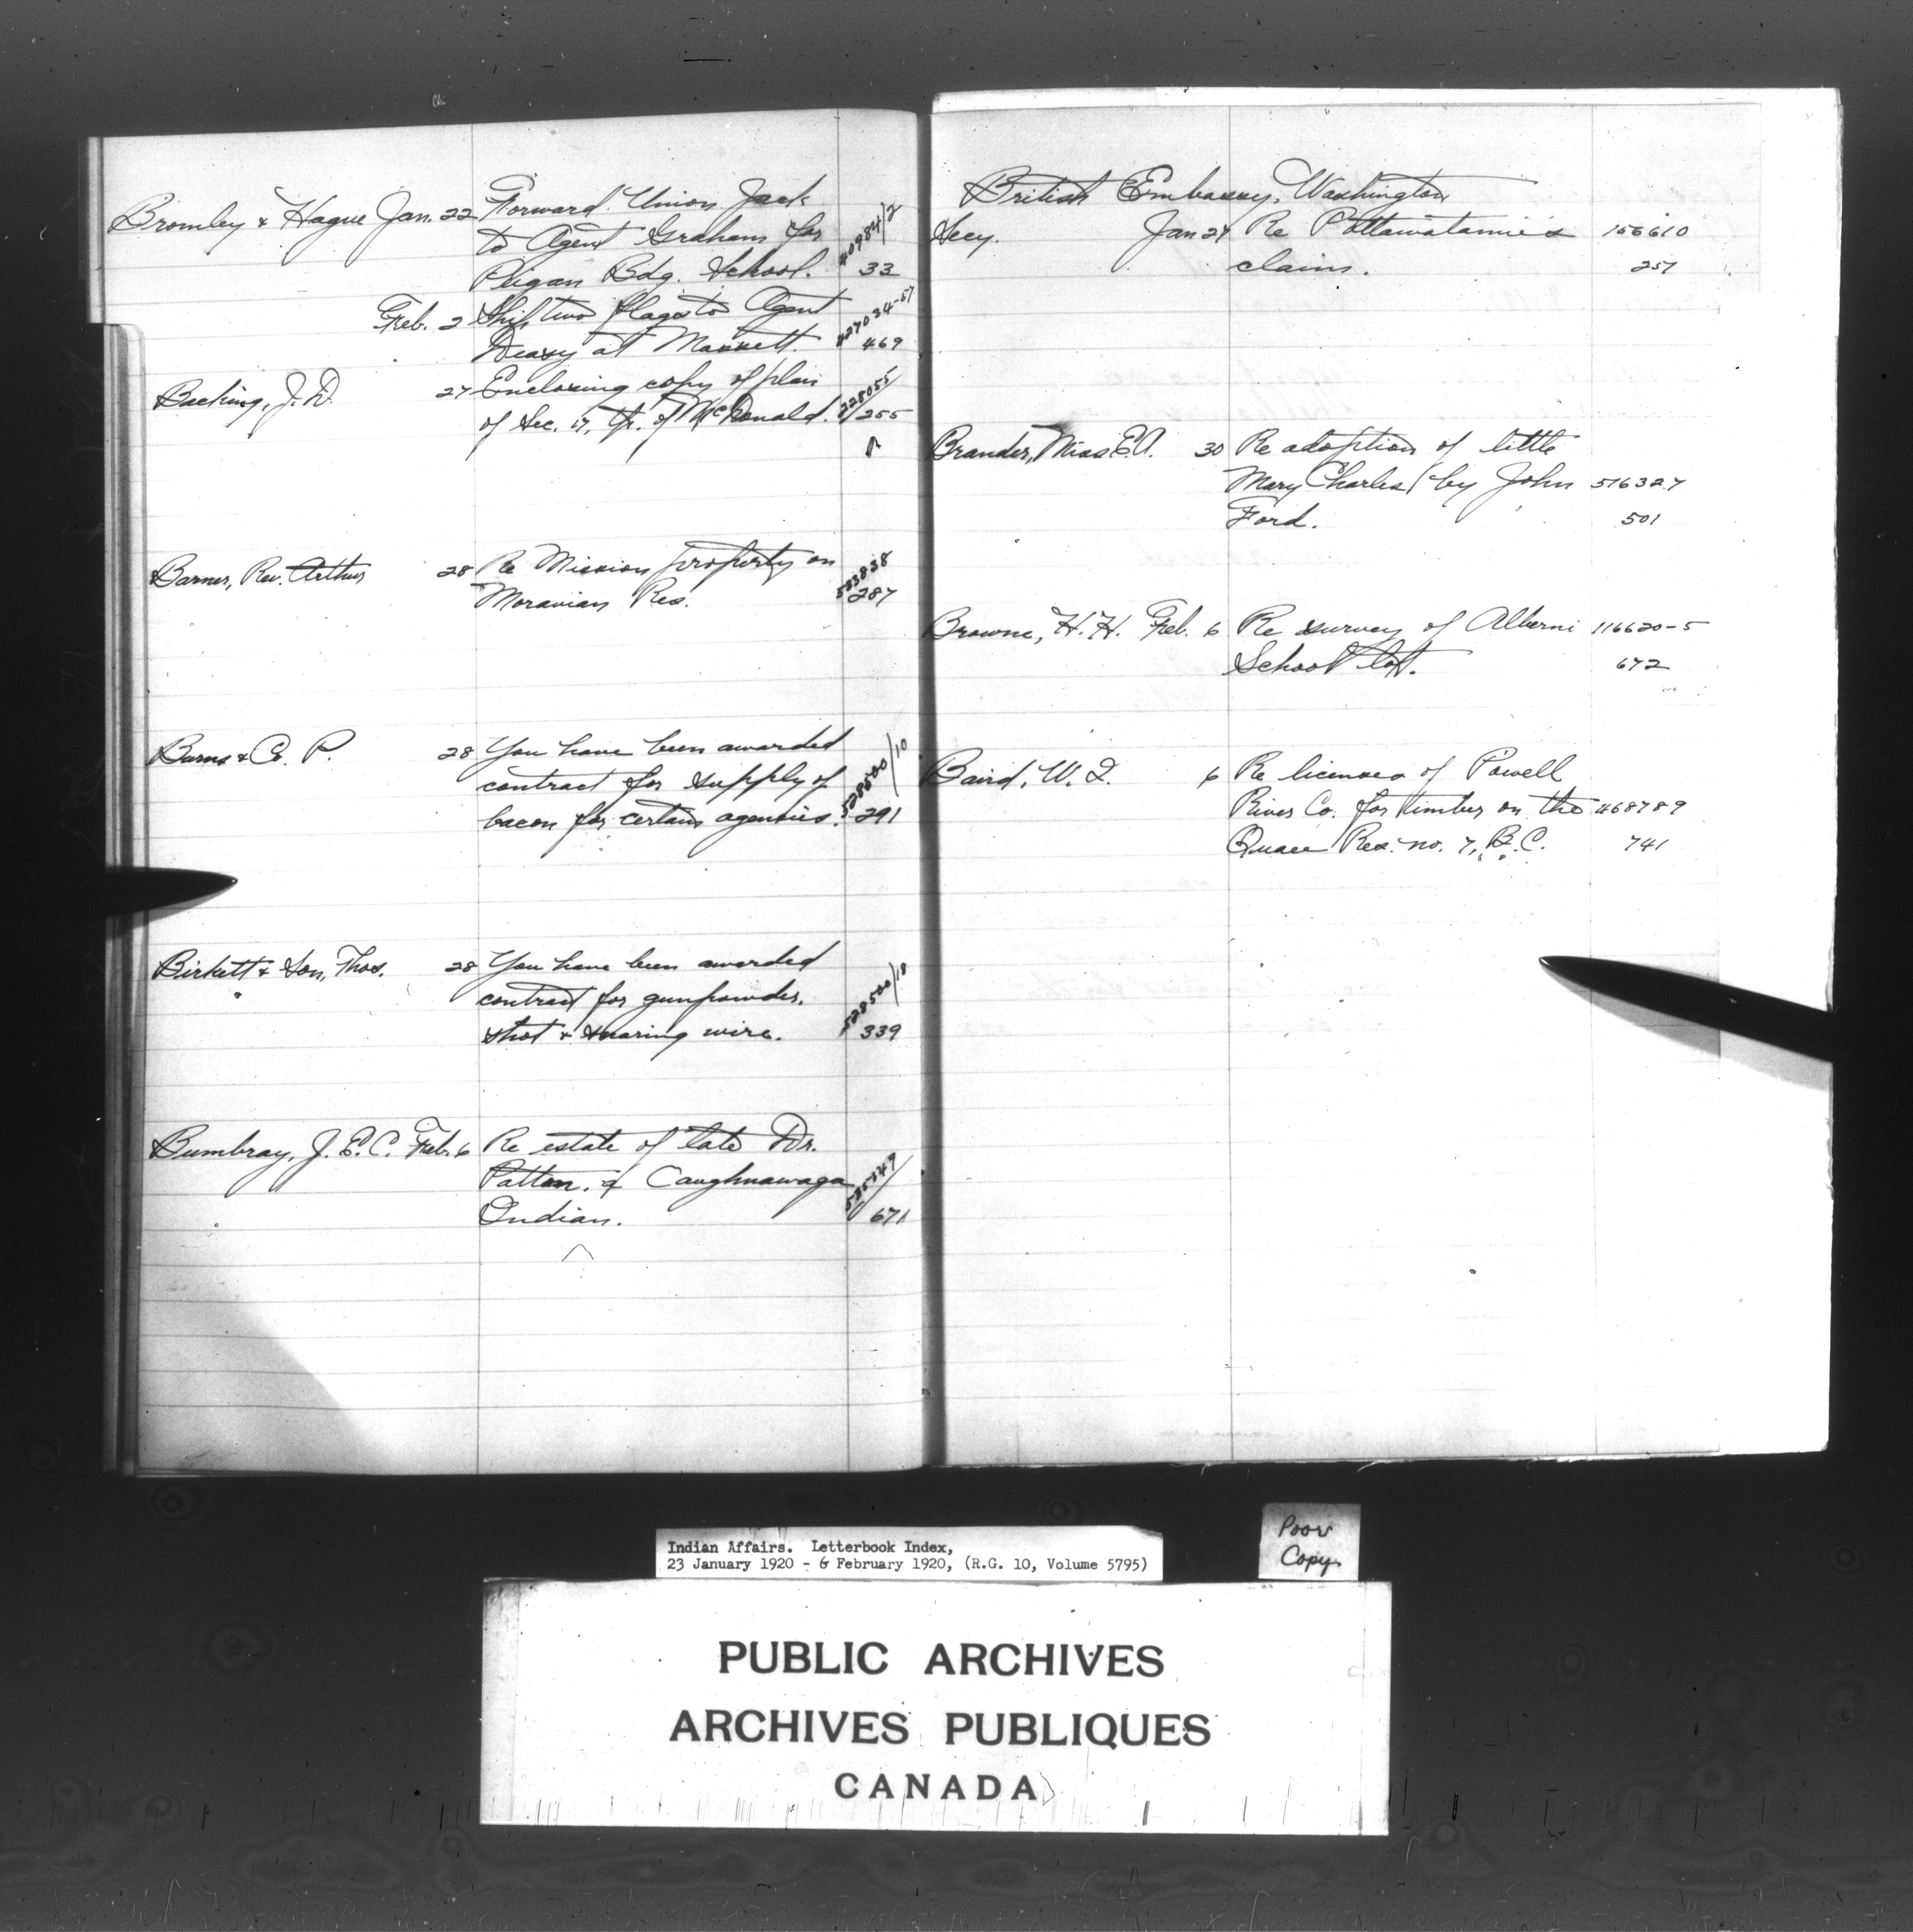 Bromley & Hague Jan. 22 Forward Union Jack 40984/2
to Agent Graham for
Peigan Bdg. School. 33
Feb. 2 Ship two flags to Agent 427034-57
Deasy at Massett. 469
Baching, J. D. 27 Enclosing copy of plan 228055/
of Sec. 17, Tp. of McDonald. 255
Barner, Rev. Arthur 28 Re Mission property on 583838
Moravian Res. 287
Burns & Co. P. 28 You have been awarded 528500/10
contract for supply of
bacon for certain agencies. 291
Birkett & Son, Thos. 28 You have been awarded 528500/18
contract for gunpowder,
shot & snaring wire. 339
Bumbray, J. E. C. Feb. 6 Re estate of late Dr.
Patton, a Caughnawaga
Indian. 671
British Embassy, Washington
Secy. Jan 27 Re Pottawatamie's 156610
claims. 257
Brander, Miss E.A. 30 Re adoption of little
Mary Charles by John 516327
Ford. 501
Browne, H. H. Feb. 6 Re survey of Alberni 116620-5
School lot. 672
Baird, W. J. 6 Re licenses of Powell
River Co. for timber on the 468789
Res. no. 7, B.C. 741
Indian Affairs. Letterbook Index,
23 January 1920 - 6 February 1920, (R.G. 10, Volume 5795)
Poor
Copy
PUBLIC ARCHIVES
ARCHIVES PUBLIQUES
CANADA